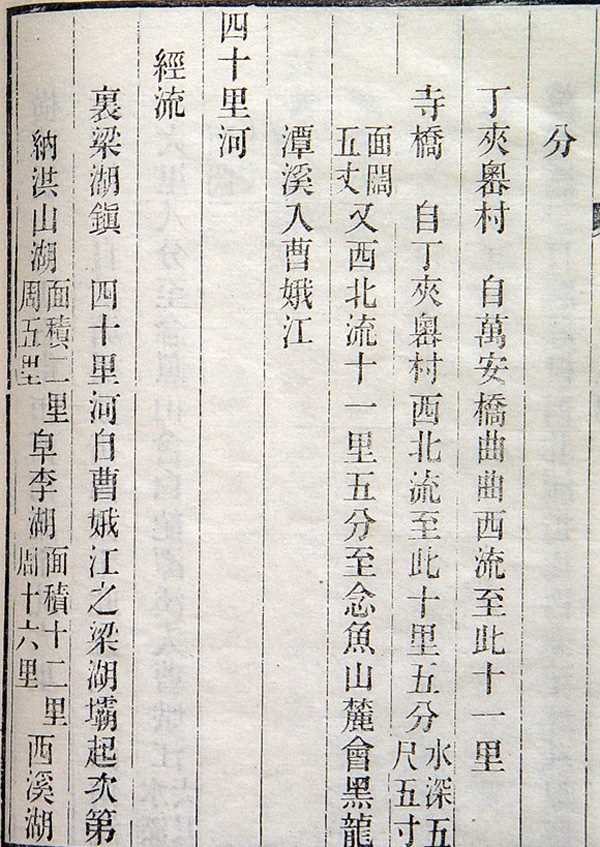 分
丁夾嶴村　自萬安橋曲曲西流至此十一里
寺橋　自丁夾嶴村西北流至此十里五分水深五尺五寸
面闊五丈又西北流十一里五分至念魚山麓會黑龍
潭溪入曹娥江
四十里河
經流
裏梁湖鎮　四十里河自曹娥江之梁湖壩起次第
納洪山湖面積二里周五里皁李湖面積十二里周十六里西溪湖